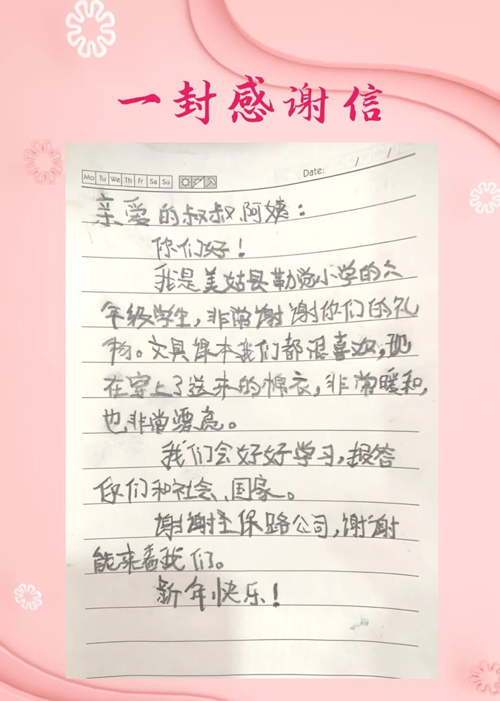 一封感谢信
Mo Tu We Th Fr Sa Su
Date: / /
亲爱的叔叔阿姨:
你们好!
我是美姑县勒觉小学的六
年级学生,非常谢谢你们的礼
物。文具课本我们都很喜欢,现
在穿上了送来的棉衣,非常暖和,
也非常漂亮。
我们会好好学习,报答
你们和社会、国家。
谢谢主保路公司,谢谢
能来看我们。
新年快乐!